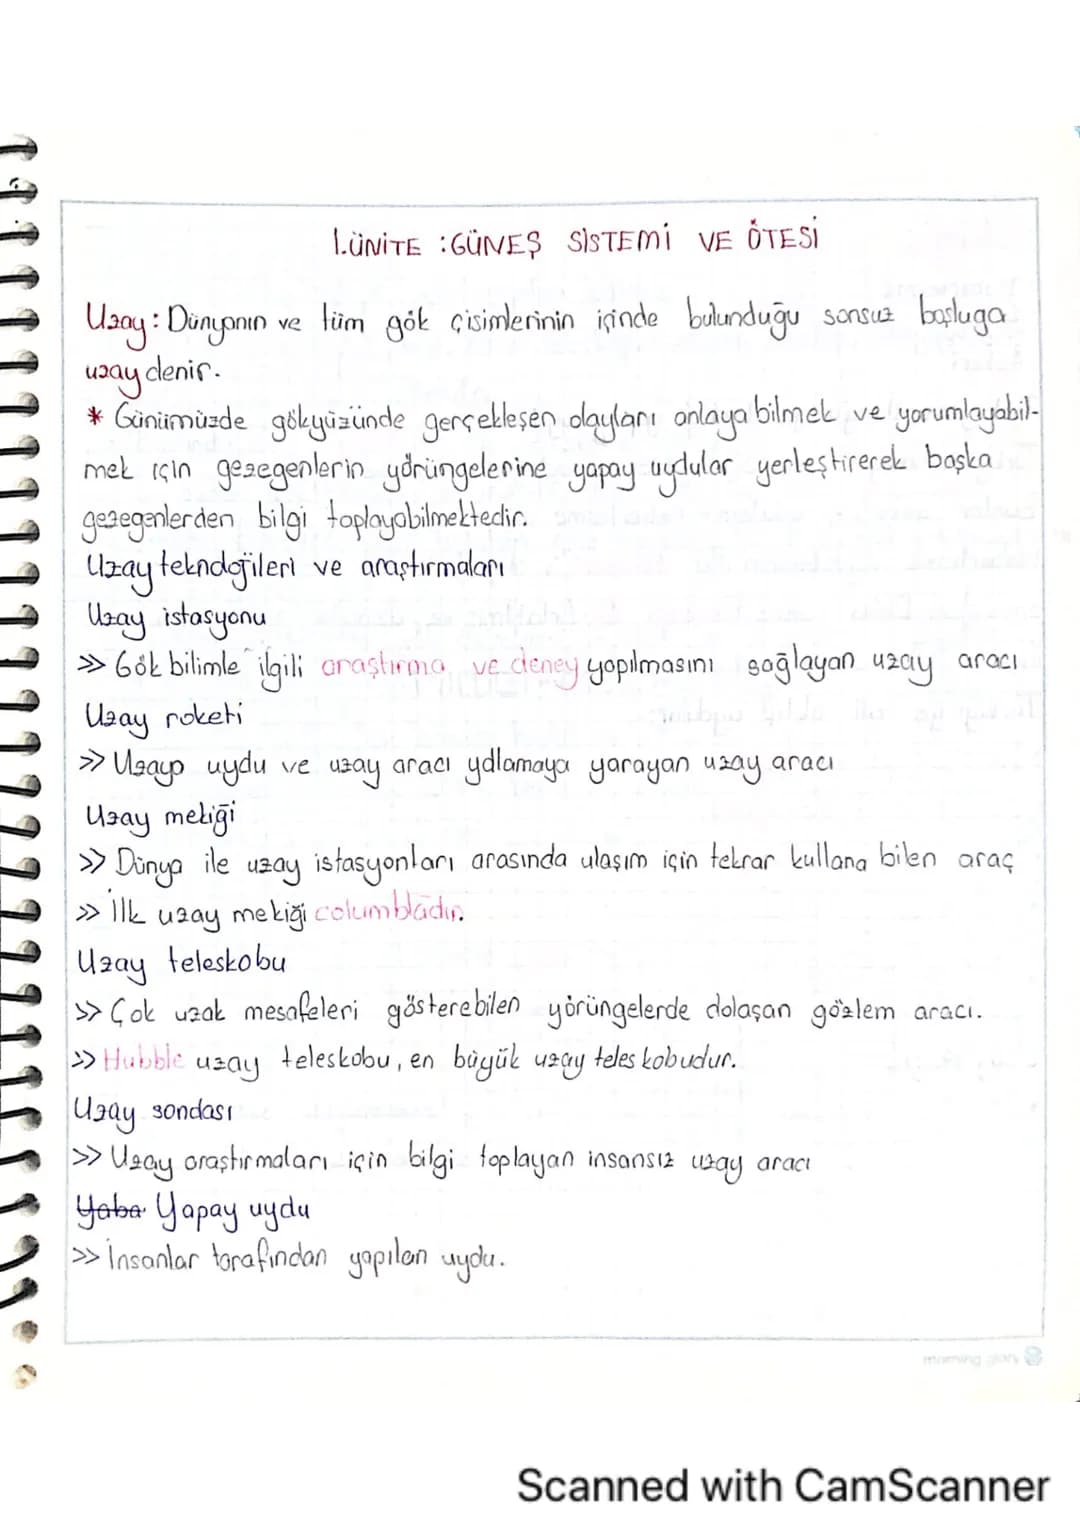 1.ÜNİTE : GÜNEŞ SİSTEMİ VE ÖTESİ
Uzay: Dünyanın ve tüm gök cisimlerinin içinde bulunduğu sonsuz boşluga
uzay denir.
* Günümüzde gökyüzünde gerçekleşen olayları anlaya bilmek ve yorumlayabil-
mek için gezegenlerin yörüngelerine yapay uydular yerleştirerek başka
gezegenlerden bilgi toplayabilmektedir.
Uzay teknolojileri ve araştırmaları
Uzay istasyonu
>> Gök bilimle ilgili araştırma ve deney yapılmasını sağlayan uzay aracı
Uzay roketi
>> Uzaya uydu ve uzay aracı yollamaya yarayan uzay aracı
Uzay mekiği
>> Dünya ile uzay istasyonları arasında ulaşım için tekrar kullana bilen araç
>> İlk uzay mekiği columbiadır.
Uzay teleskobu
>> Çok uzak mesafeleri gösterebilen yörüngelerde dolaşan gözlem aracı.
>> Hubble uzay teleskobu, en büyük uzay teleskobudur.
Uzay sondası
>> Uzay araştırmaları için bilgi toplayan insansız uzay aracı
Yaba Yapay uydu
>> İnsanlar tarafından yapılan uydu.
morning glory
Scanned with CamScanner